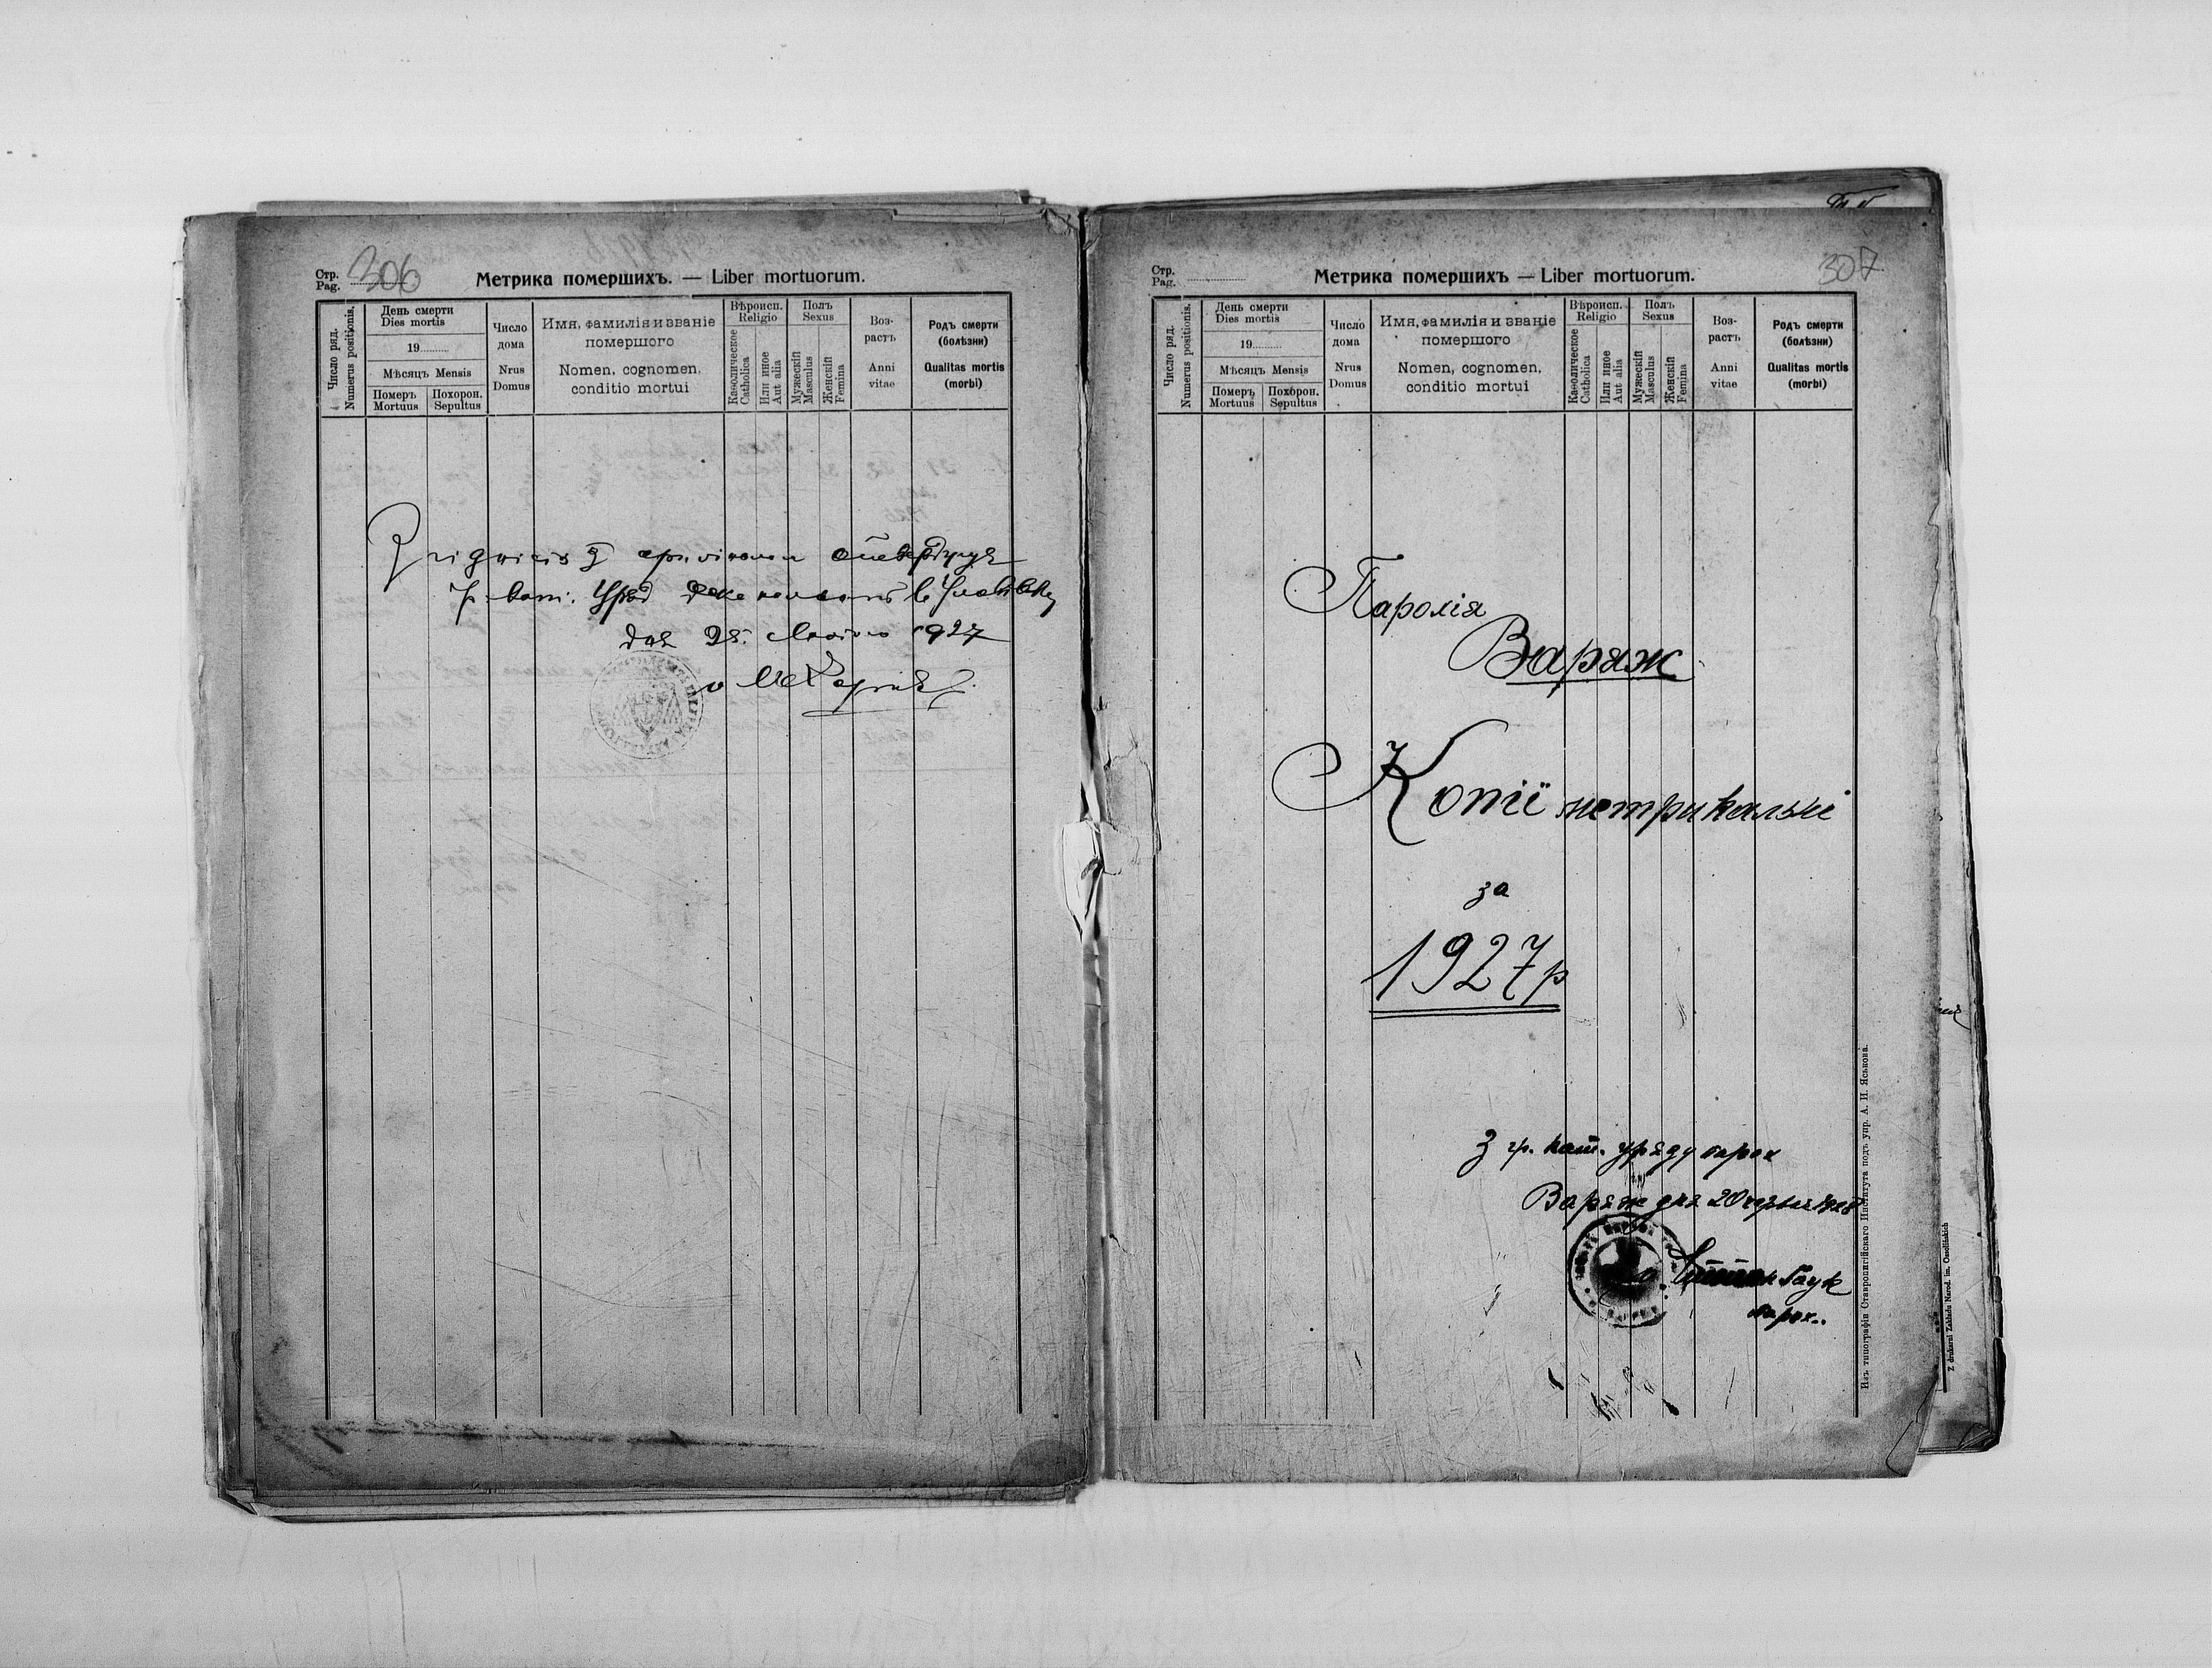 Стр.
Pag. 306
Метрика помершихъ. — Liber mortuorum.
Число ряд.
Numerus positionis.
День смерти
Dies mortis
19
Мѣсяцъ Mensis
Померъ
Mortuus
Похорон.
Sepultus
Число
дома
Nrus
Domus
Имя, фамилія и званіе
помершого
Nomen, cognomen,
conditio mortui
Вѣроисп.
Religio
Каѳолическое
Catholica
Или иное
Aut alia
Полъ
Sexus
Мужескій
Masculus
Женскій
Femina
Воз-
растъ
Anni
vitae
Родъ смерти
(болѣзни)
Qualitas mortis
(morbi)
Зріднicть з оригіналом стверджує
гр. кат. Уряд деканальний в
дня 28. Лютого 1927
Стр.
Pag.
Метрика помершихъ — Liber mortuorum.
307
Число ряд.
Numerus positionis.
День смерти
Dies mortis
19
Мѣсяцъ Mensis
Померъ
Mortuus
Похорон.
Sepultus
Число
дома
Nrus
Domus
Имя, фамилія и званіе
помершого
Nomen, cognomen,
conditio mortui
Вѣроисп.
Religio
Каѳолическое
Catholica
Или иное
Aut alia
Полъ
Sexus
Мужескій
Masculus
Женскій
Femina
Воз-
растъ
Anni
vitae
Родъ смерти
(болѣзни)
Qualitas mortis
(morbi)
Парохія
Варяж
Копії метрикальні
за
1927 р
З гр. кат. уряду парох
Варяж дня 20 червня 1928
парох..
Изъ типографіи Ставропигійскаго Института подъ упр. А. И. Яськова.
Z drukarni Zakładu Narod. im. Ossolińskich